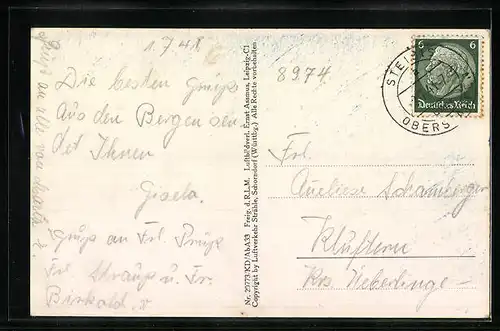 1.7.41
Die besten Grüße
Aus den Bergen sen
det Ihnen
Gisela.
Grüße an Frl.
Frl. u. Fr.
8974
Nr. 27773/KD/AbA33 Freig. d. R.L.M. Luftbildverl. Ernst Assmus, Leipzig-C1
Copyright by Luftverkehr Strähle, Schorndorf (Württbg.) Alle Rechte vorbehalten
6 6
Deutsches Reich
STEI
OBERS
Frl.
Anneliese Schamberger
Kluftern
Krs. Ueberlingen